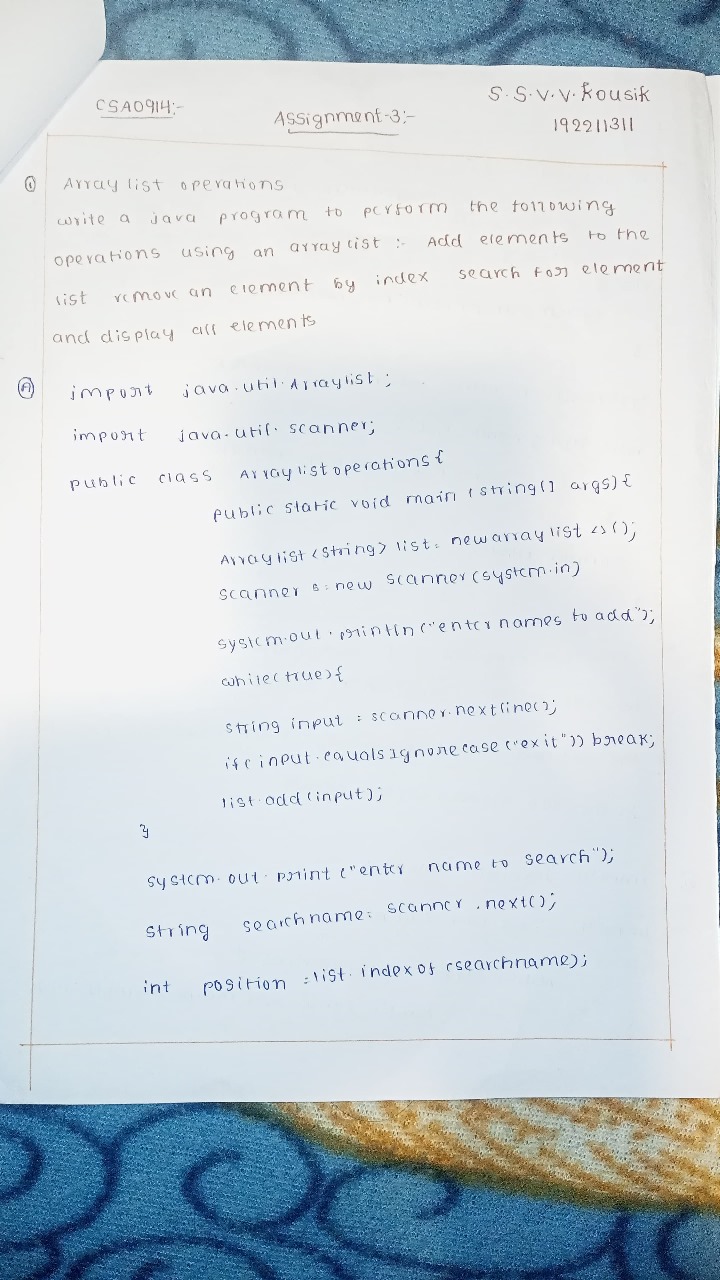 CSA0914:-
Assignment-3:-
S.S.V.V.Kousik
192211311
① Array list operations
write a java program to perform the following
operations using an array list :- Add elements to the
list remove an element by index search for element
and display all elements
Ⓐ import java.util.Arraylist;
import java.util.scanner;
public class Arraylistoperations{
public static void main (string[] args){
Arraylist<string> list = newarraylist<>();
scanner s = new scanner(system.in)
system.out.println("enter names to add");
while(true){
string input = scanner.nextline();
if(input.equalsIgnorecase("exit")) break;
list.add(input);
}
system.out.print("enter name to search");
string searchname = scanner.next();
int position = list.indexof(searchname);